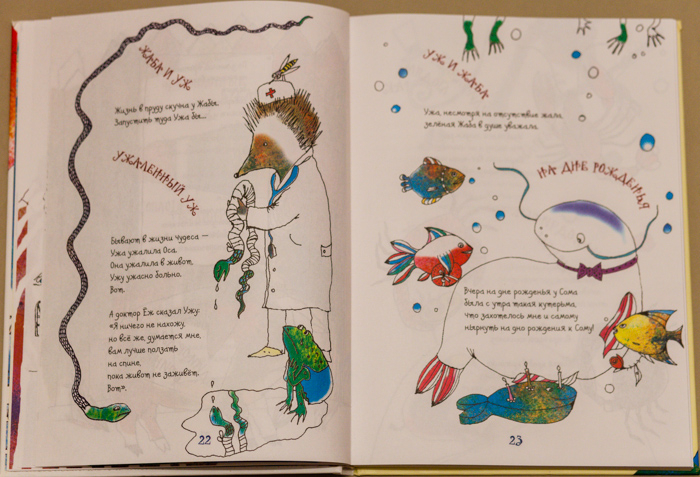 ЖАБА И УЖ
Жизнь в пруду скучна у Жабы.
Запустить туда Ужа бы...
УЖАЛЕННЫЙ УЖ
Бывают в жизни чудеса —
Ужа ужалила Оса.
Она ужалила в живот,
Ужу ужасно больно.
Вот.
А доктор Ёж сказал Ужу:
«Я ничего не нахожу,
но всё же, думается мне,
вам лучше ползать
на спине,
пока живот не заживёт.
Вот».
22
УЖ И ЖАБА
Ужа, несмотря на отсутствие жала,
зелёная Жаба в душе уважала.
НА ДНЕ РОЖДЕНЬЯ
Вчера на дне рожденья у Сома
была с утра такая кутерьма,
что захотелось мне и самому
нырнуть на дно рождения к Сому!
23